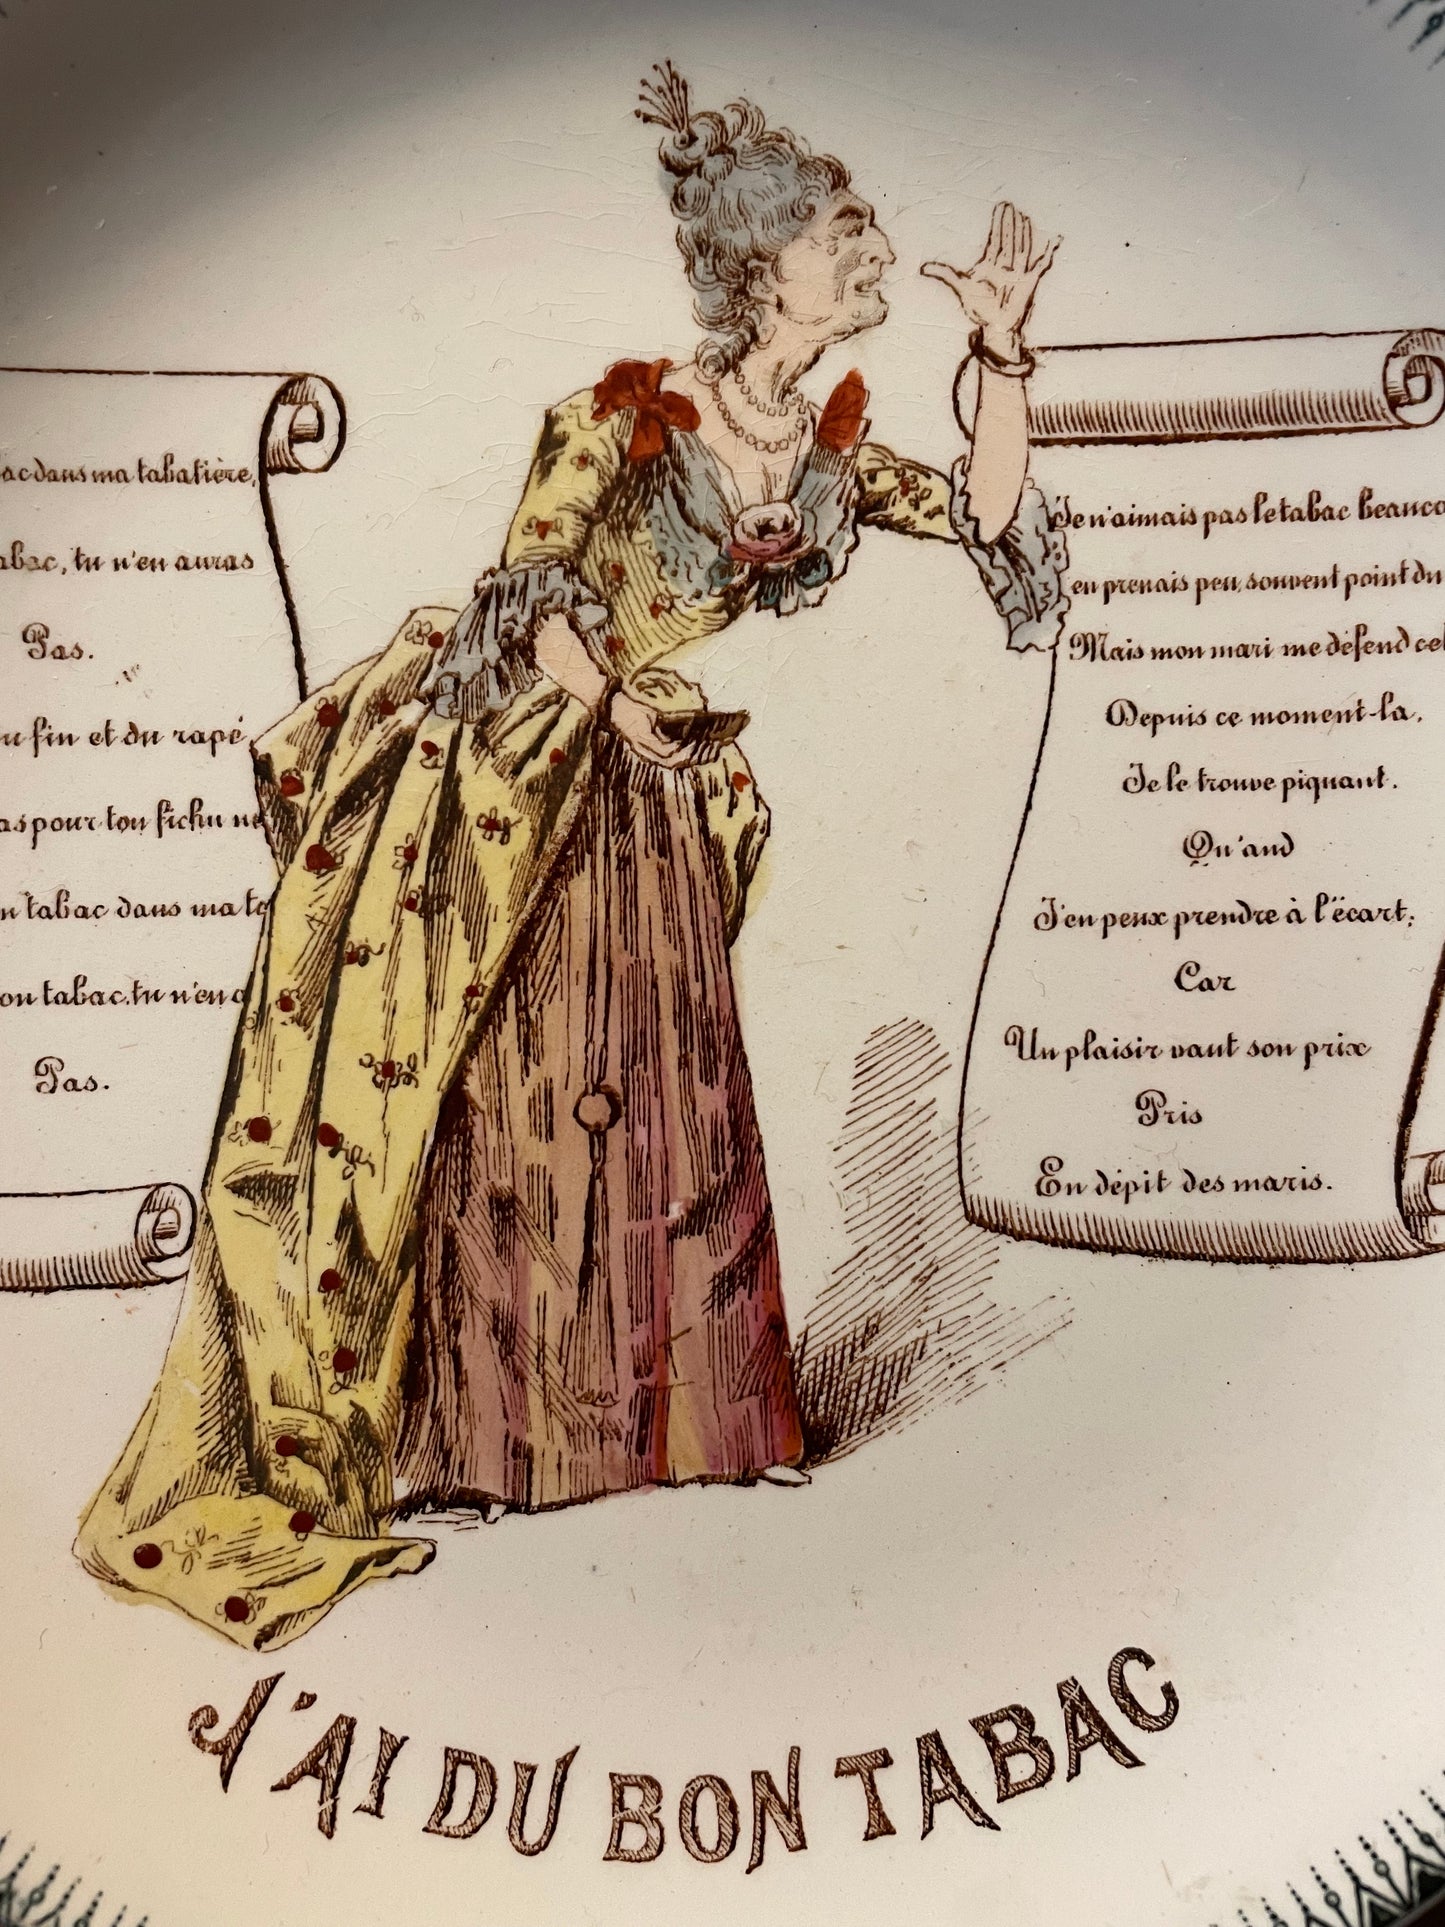 dans ma tabatière,
tu n'en auras
Pas.
fin et du rapé
pour ton fichu
tabac dans ma
tabac, tu n'en
Pas.
Je n'aimais pas le tabac
en prenais peu, souvent point du
Mais mon mari me défend
Depuis ce moment-la,
Je le trouve piquant.
Qu'and
J'en peux prendre à l'ècart;
Car
Un plaisir vaut son prix
Pris
En dépit des maris.
J'AI DU BON TABAC